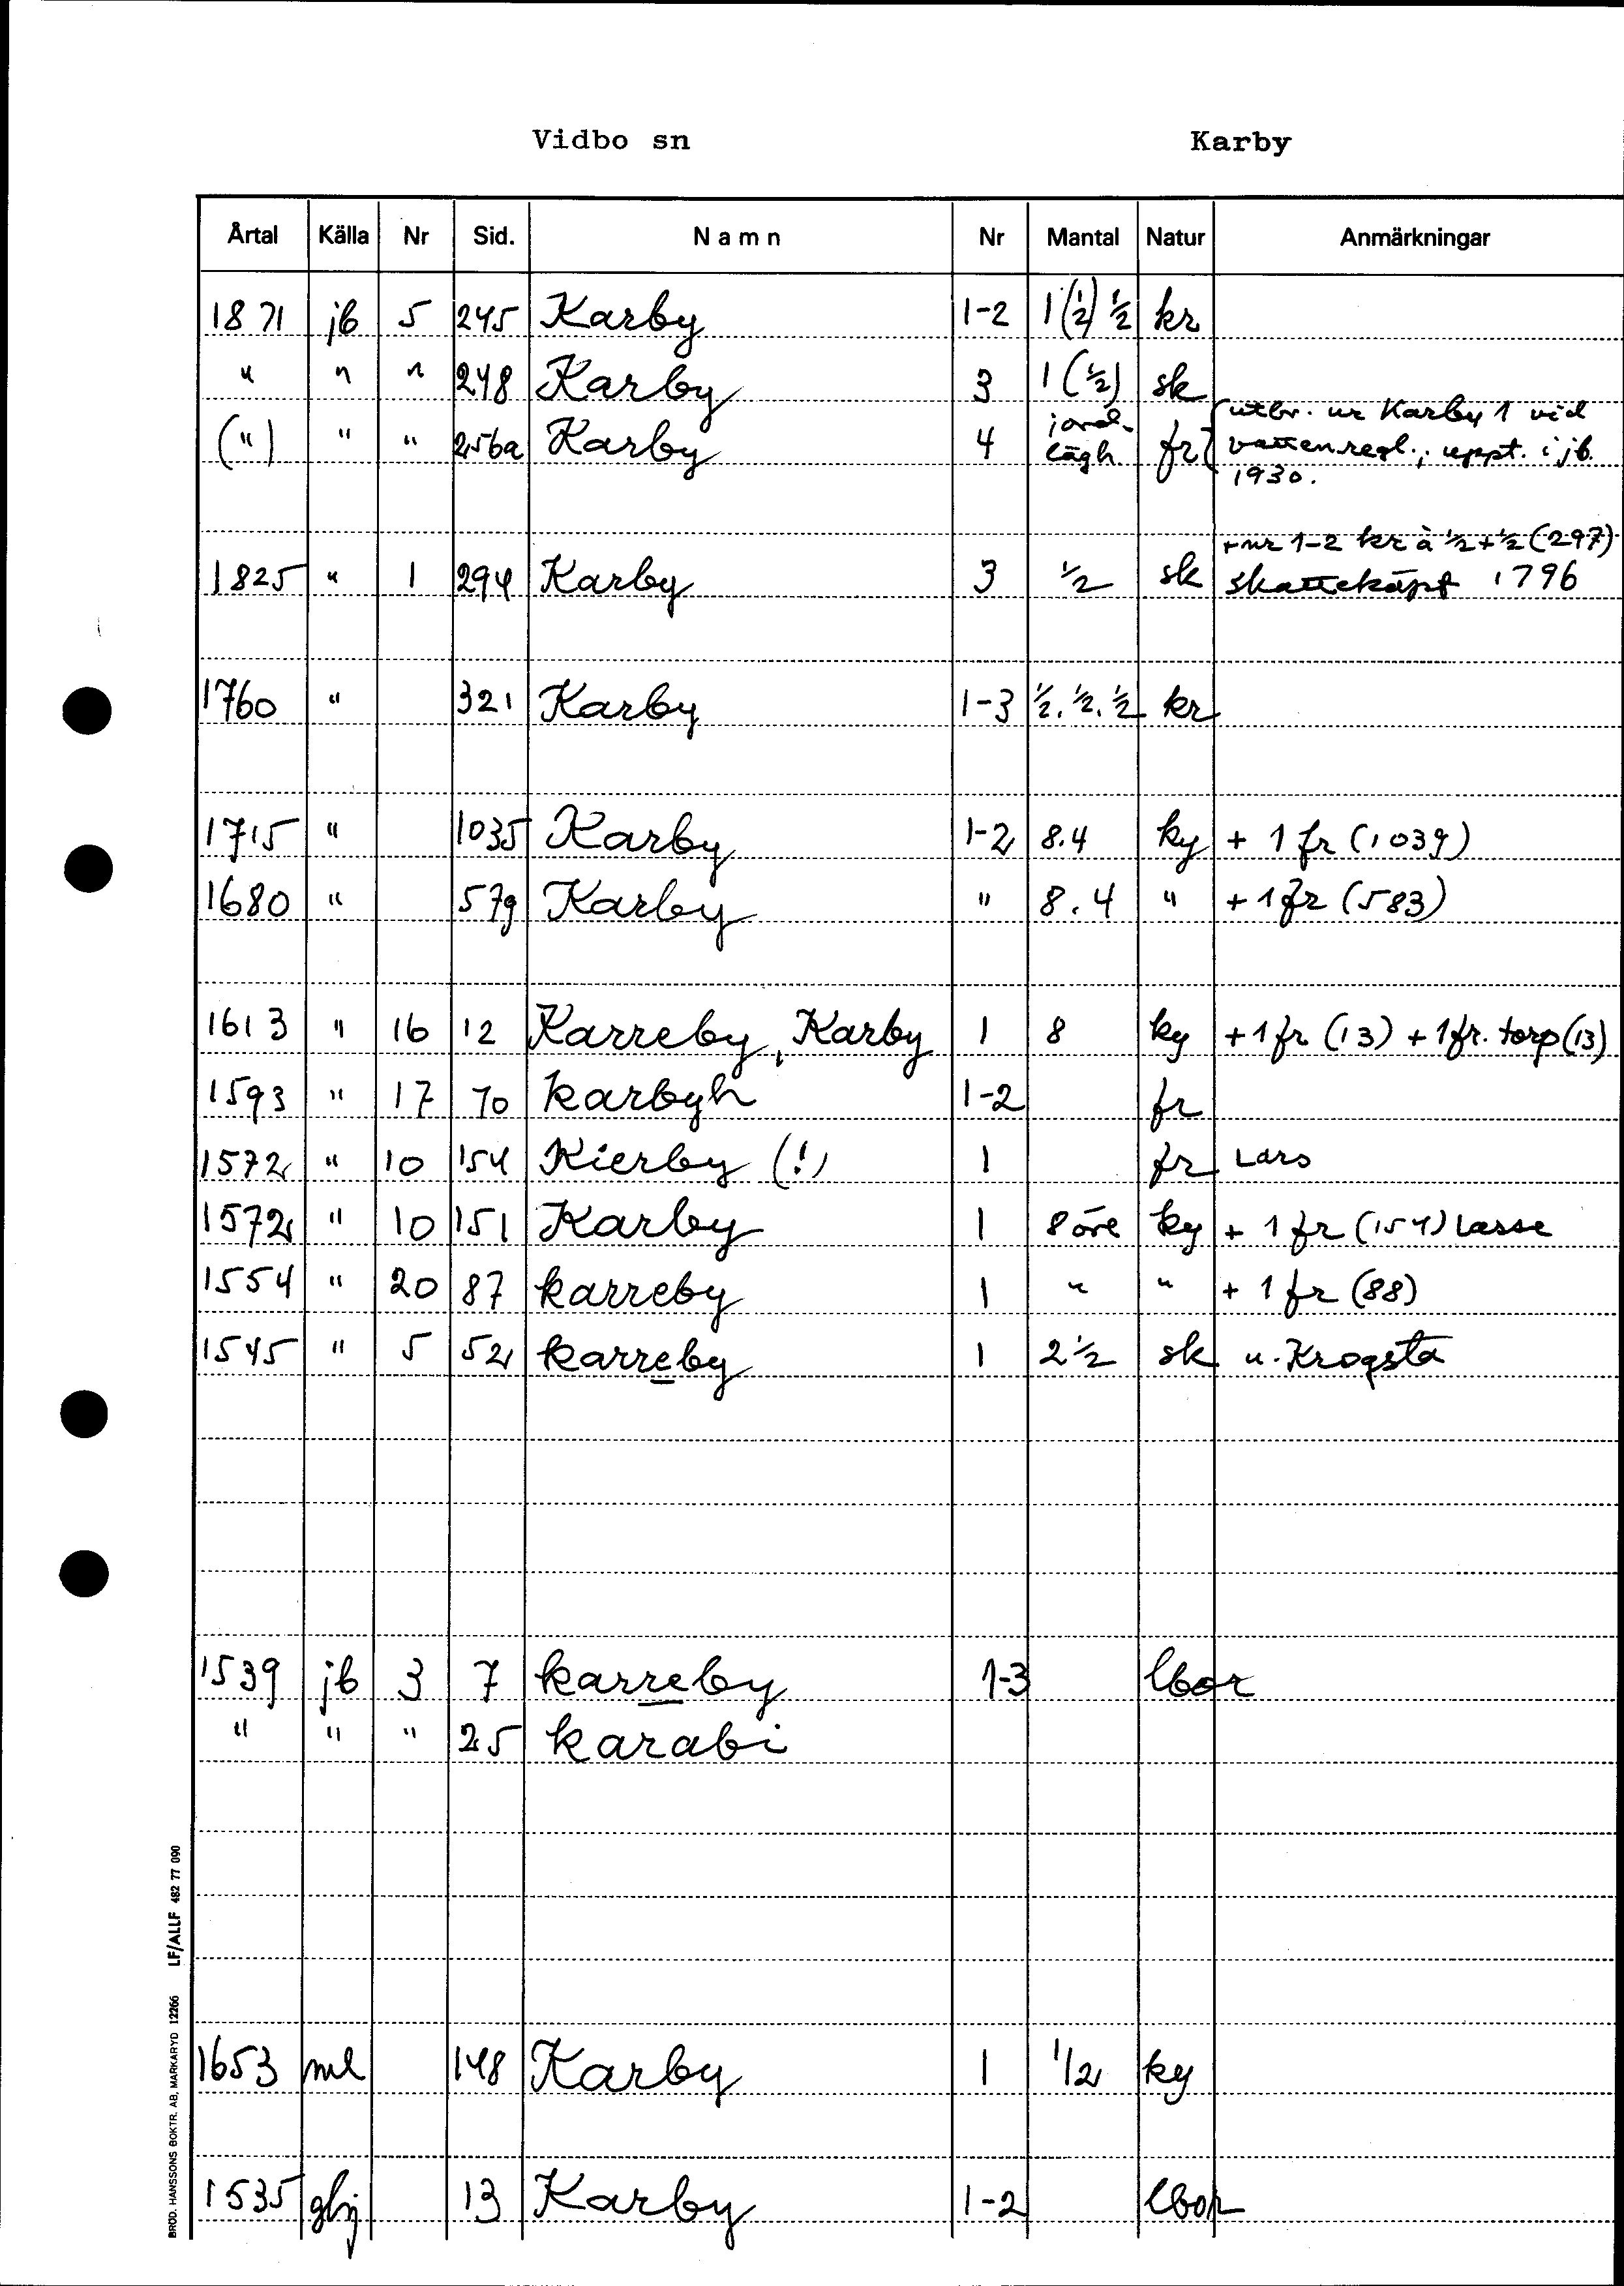 Vidbo sn Karby
Årtal Källa Nr Sid. Namn Nr Mantal Natur Anmärkningar
1871 jb 5 245 Karby 1-2 1(½) ½ kr
" " " 248 Karby 3 1(½) sk
(") " " 256a Karby 4 jord-lägh. fr {utbr. ur Karby 1 vid
vattenregl.; uppt. i jb.
1930.
+ nr 1-2 kr à ½+½ (297)
1825 " 1 294 Karby 3 ½ sk skatteköpt 1796
1760 " 321 Karby 1-3 ½.½.½ kr
1715 " 1035 Karby 1-2 8.4 ky + 1 fr (1039)
1680 " 579 Karby " 8.4 " + 1 fr (583)
1613 " 16 12 Karreby, Karby 1 8 ky + 1 fr (13) + 1 fr. torp (13)
1593 " 17 70 karbyh 1-2 fr
1572 " 10 154 Kierby (!) 1 fr Lars
1572 " 10 151 Karby 1 8 öre ky + 1 fr (154) Lasse
1554 " 20 87 karreby 1 " " + 1 fr (88)
1545 " 5 52 karreby 1 2½ sk u. Krogsta
1539 jb 3 7 karreby 1-3 lbor
" " " 25 karabi
1653 ml 148 Karby 1 1/2 ky
1535 gbj 13 Karby 1-2 lbor
BRÖD. HANSSONS BOKTR. AB, MARKARYD 12266 LF/ALLF 482 77 090